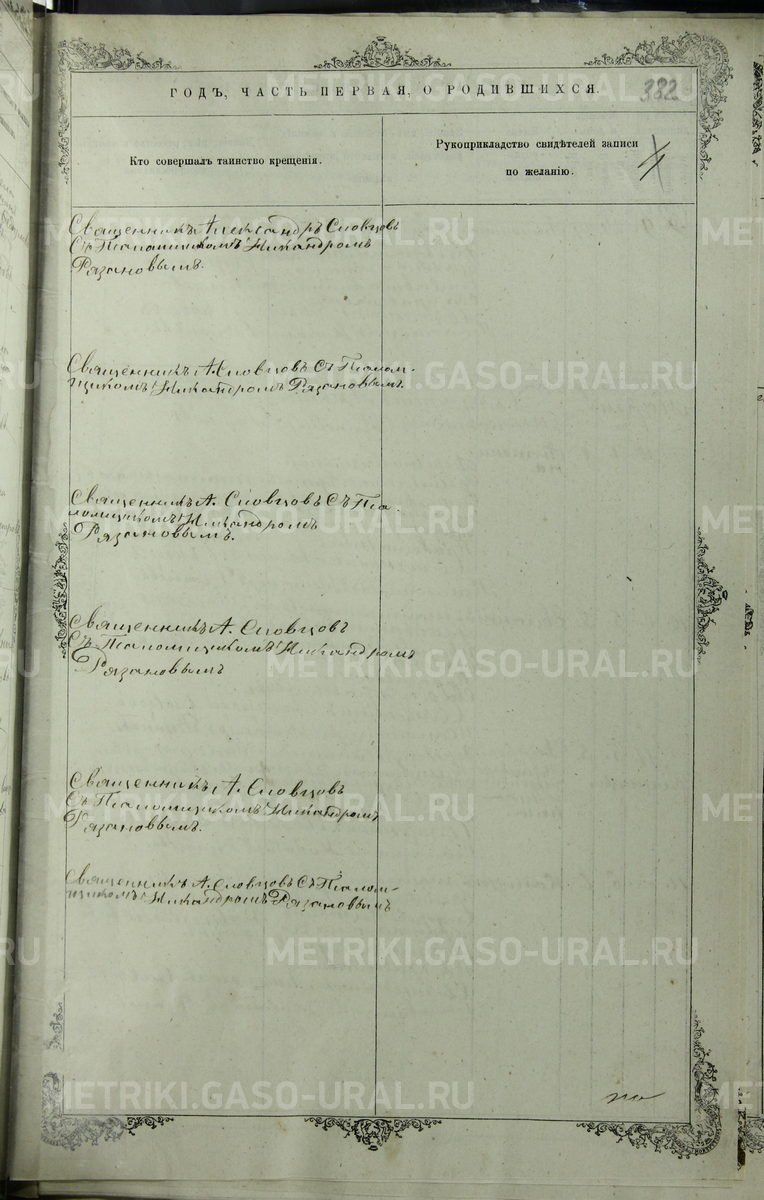 ГОДЪ, ЧАСТЬ ПЕРВАЯ, О РОДИВШИХСЯ.
382
Кто совершалъ таинство крещенія.
Рукоприкладство свидѣтелей записи
по желанію.
Священникъ Александръ Словцовъ
Съ Псаломщикомъ Никандромъ
Рязановымъ.
Священникъ А. Словцовъ Съ Псалом-
щикомъ Никандромъ Рязановымъ.
Священникъ А. Словцовъ Съ Пса-
ломщикомъ Никандромъ
Рязановымъ.
Священникъ А. Словцовъ
Съ Псаломщикомъ Никандромъ
Рязановымъ
Священникъ А. Словцовъ
Съ Псаломщикомъ Никандромъ
Рязановымъ.
Священникъ А. Словцовъ Съ Псалом-
щикомъ Никандромъ Рязановымъ
METRIKI.GASO-URAL.RU